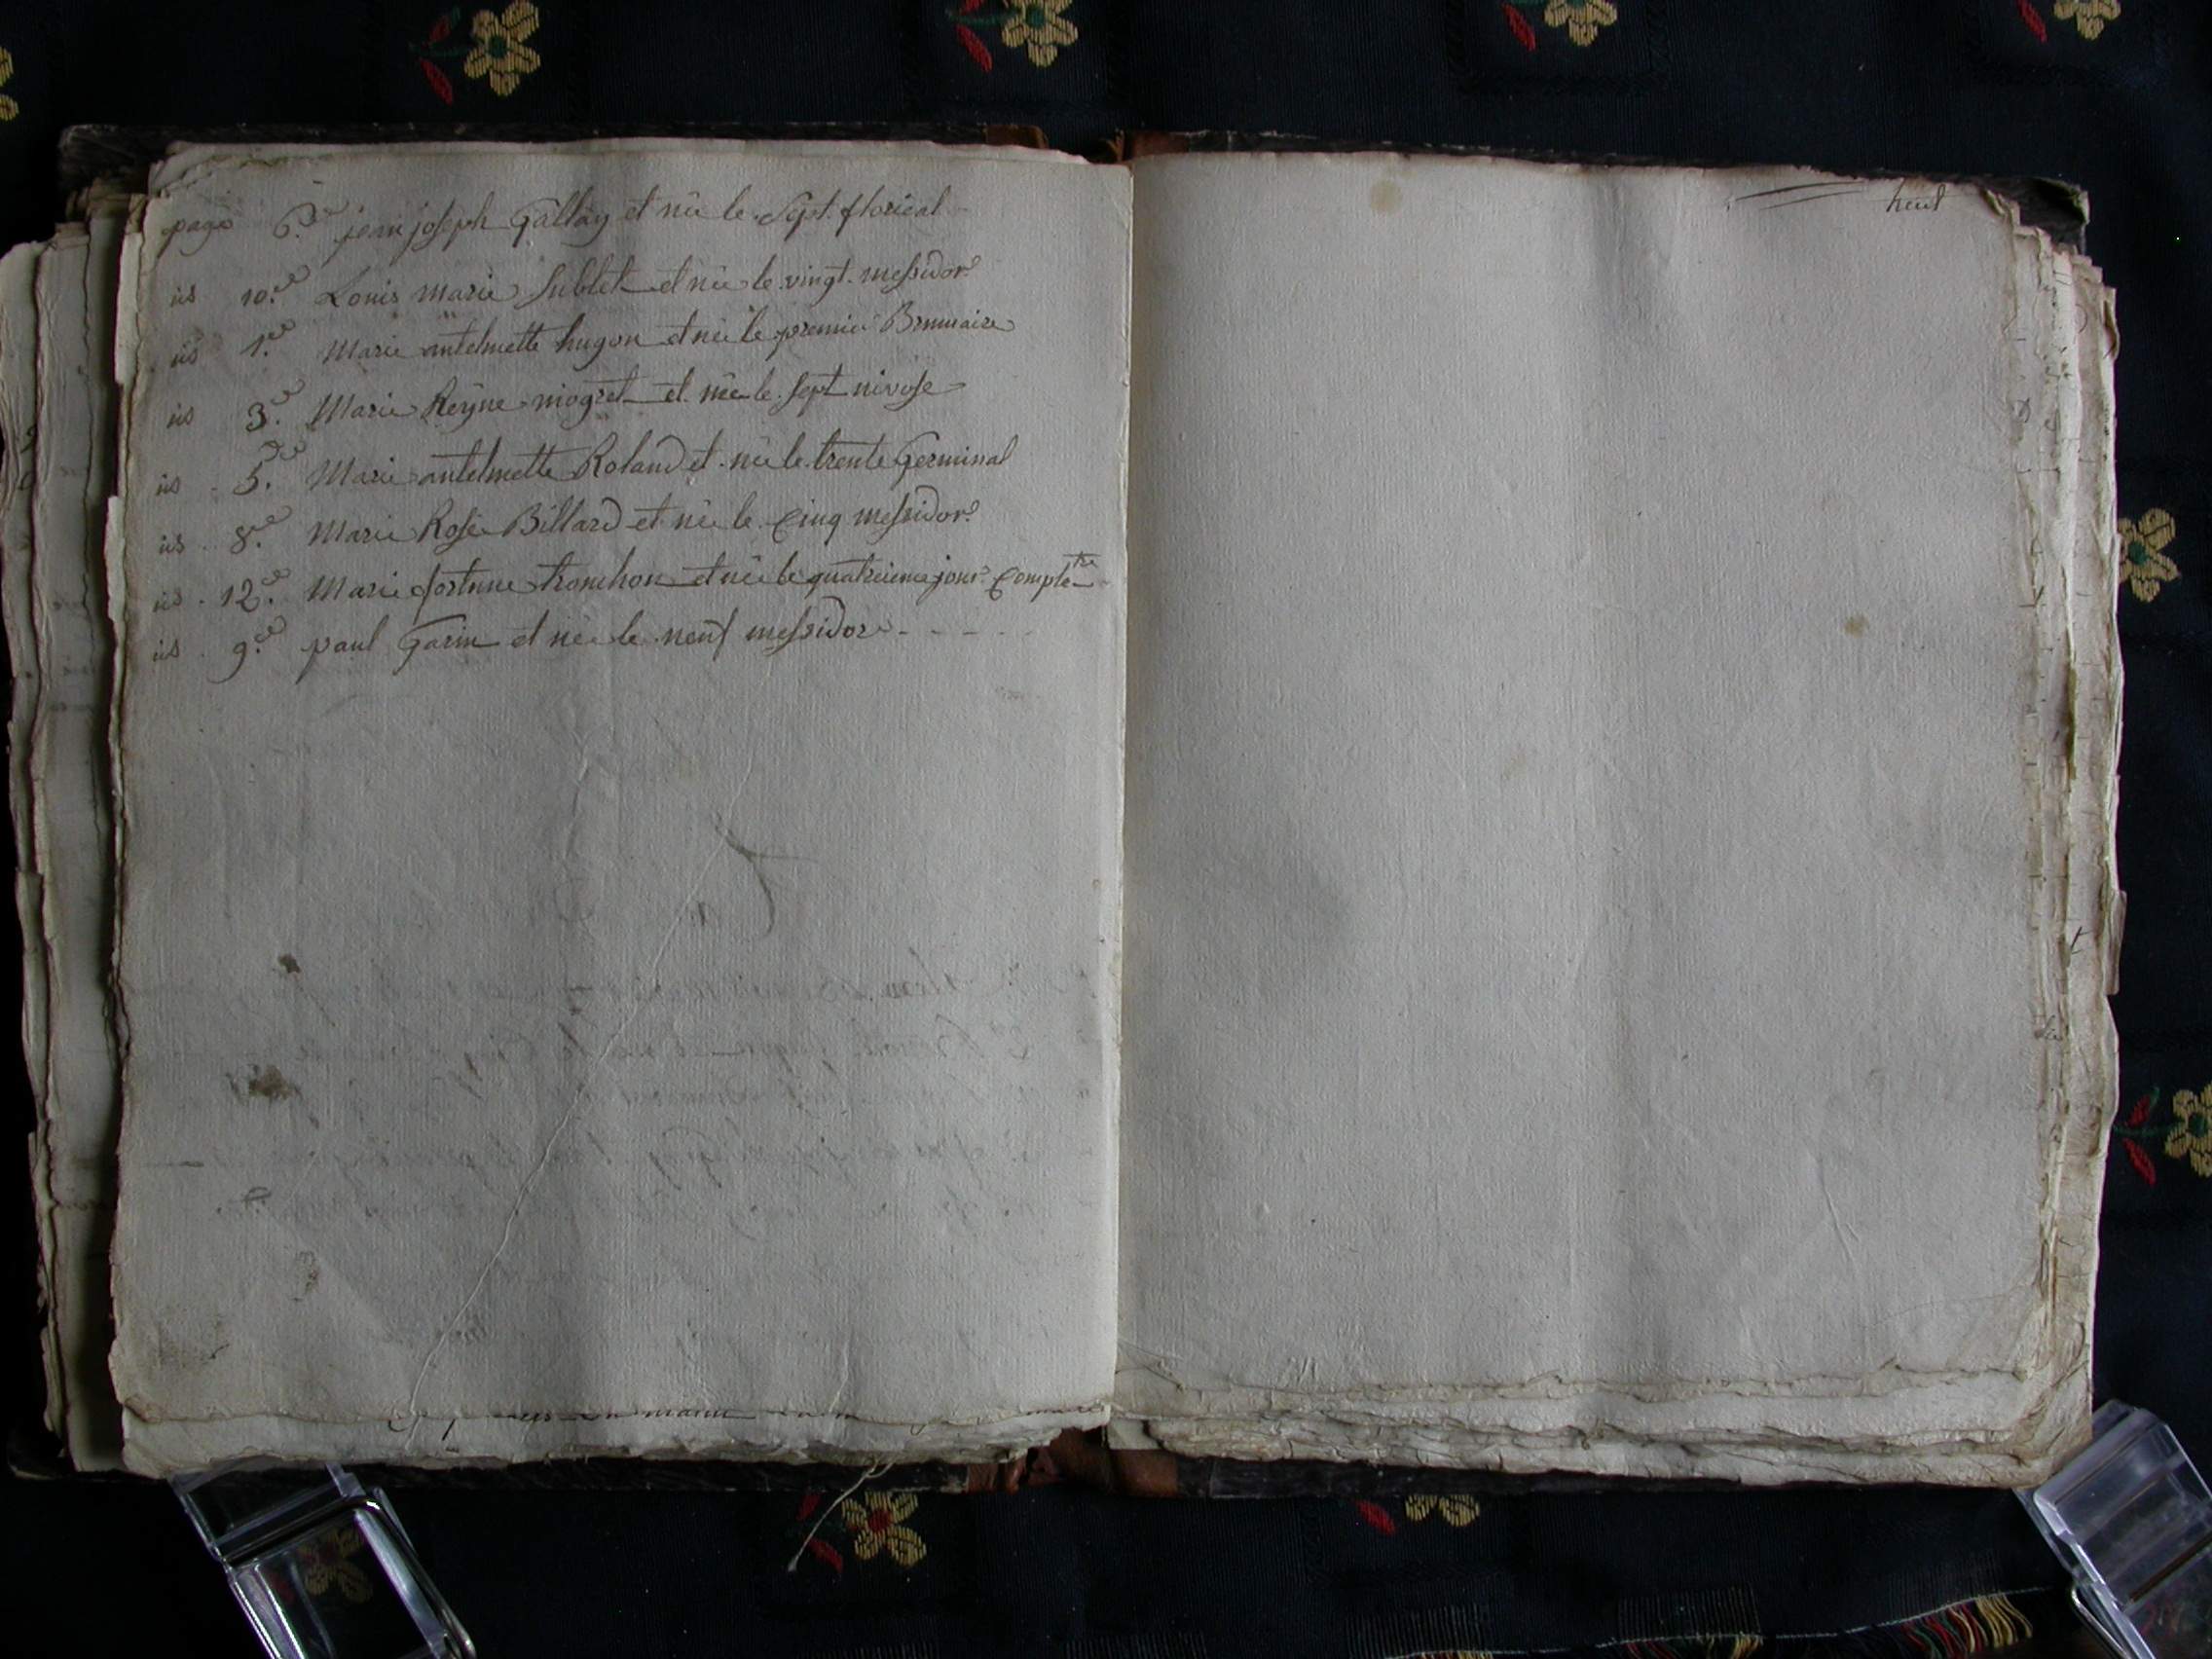 page 6.e jean joseph Gallay et née le Sept. floréal
iis 10.e Louis marie Sublet et née le vingt. messidor
iis 1.e Marie antelmette hugon et née le premier Brumaire
iis 3.e Marie Reyne mogret et née le Sept nivose
iis 5.e Marie antelmette Roland et née le trente Germinal
iis 8.e Marie Rose Billard et née le Cinq messidor
iis 12.e Marie fortune tronchon et née le quatrieme jour Comple.tre
iis 9.e paul Garin et née le neuf messidor
huit